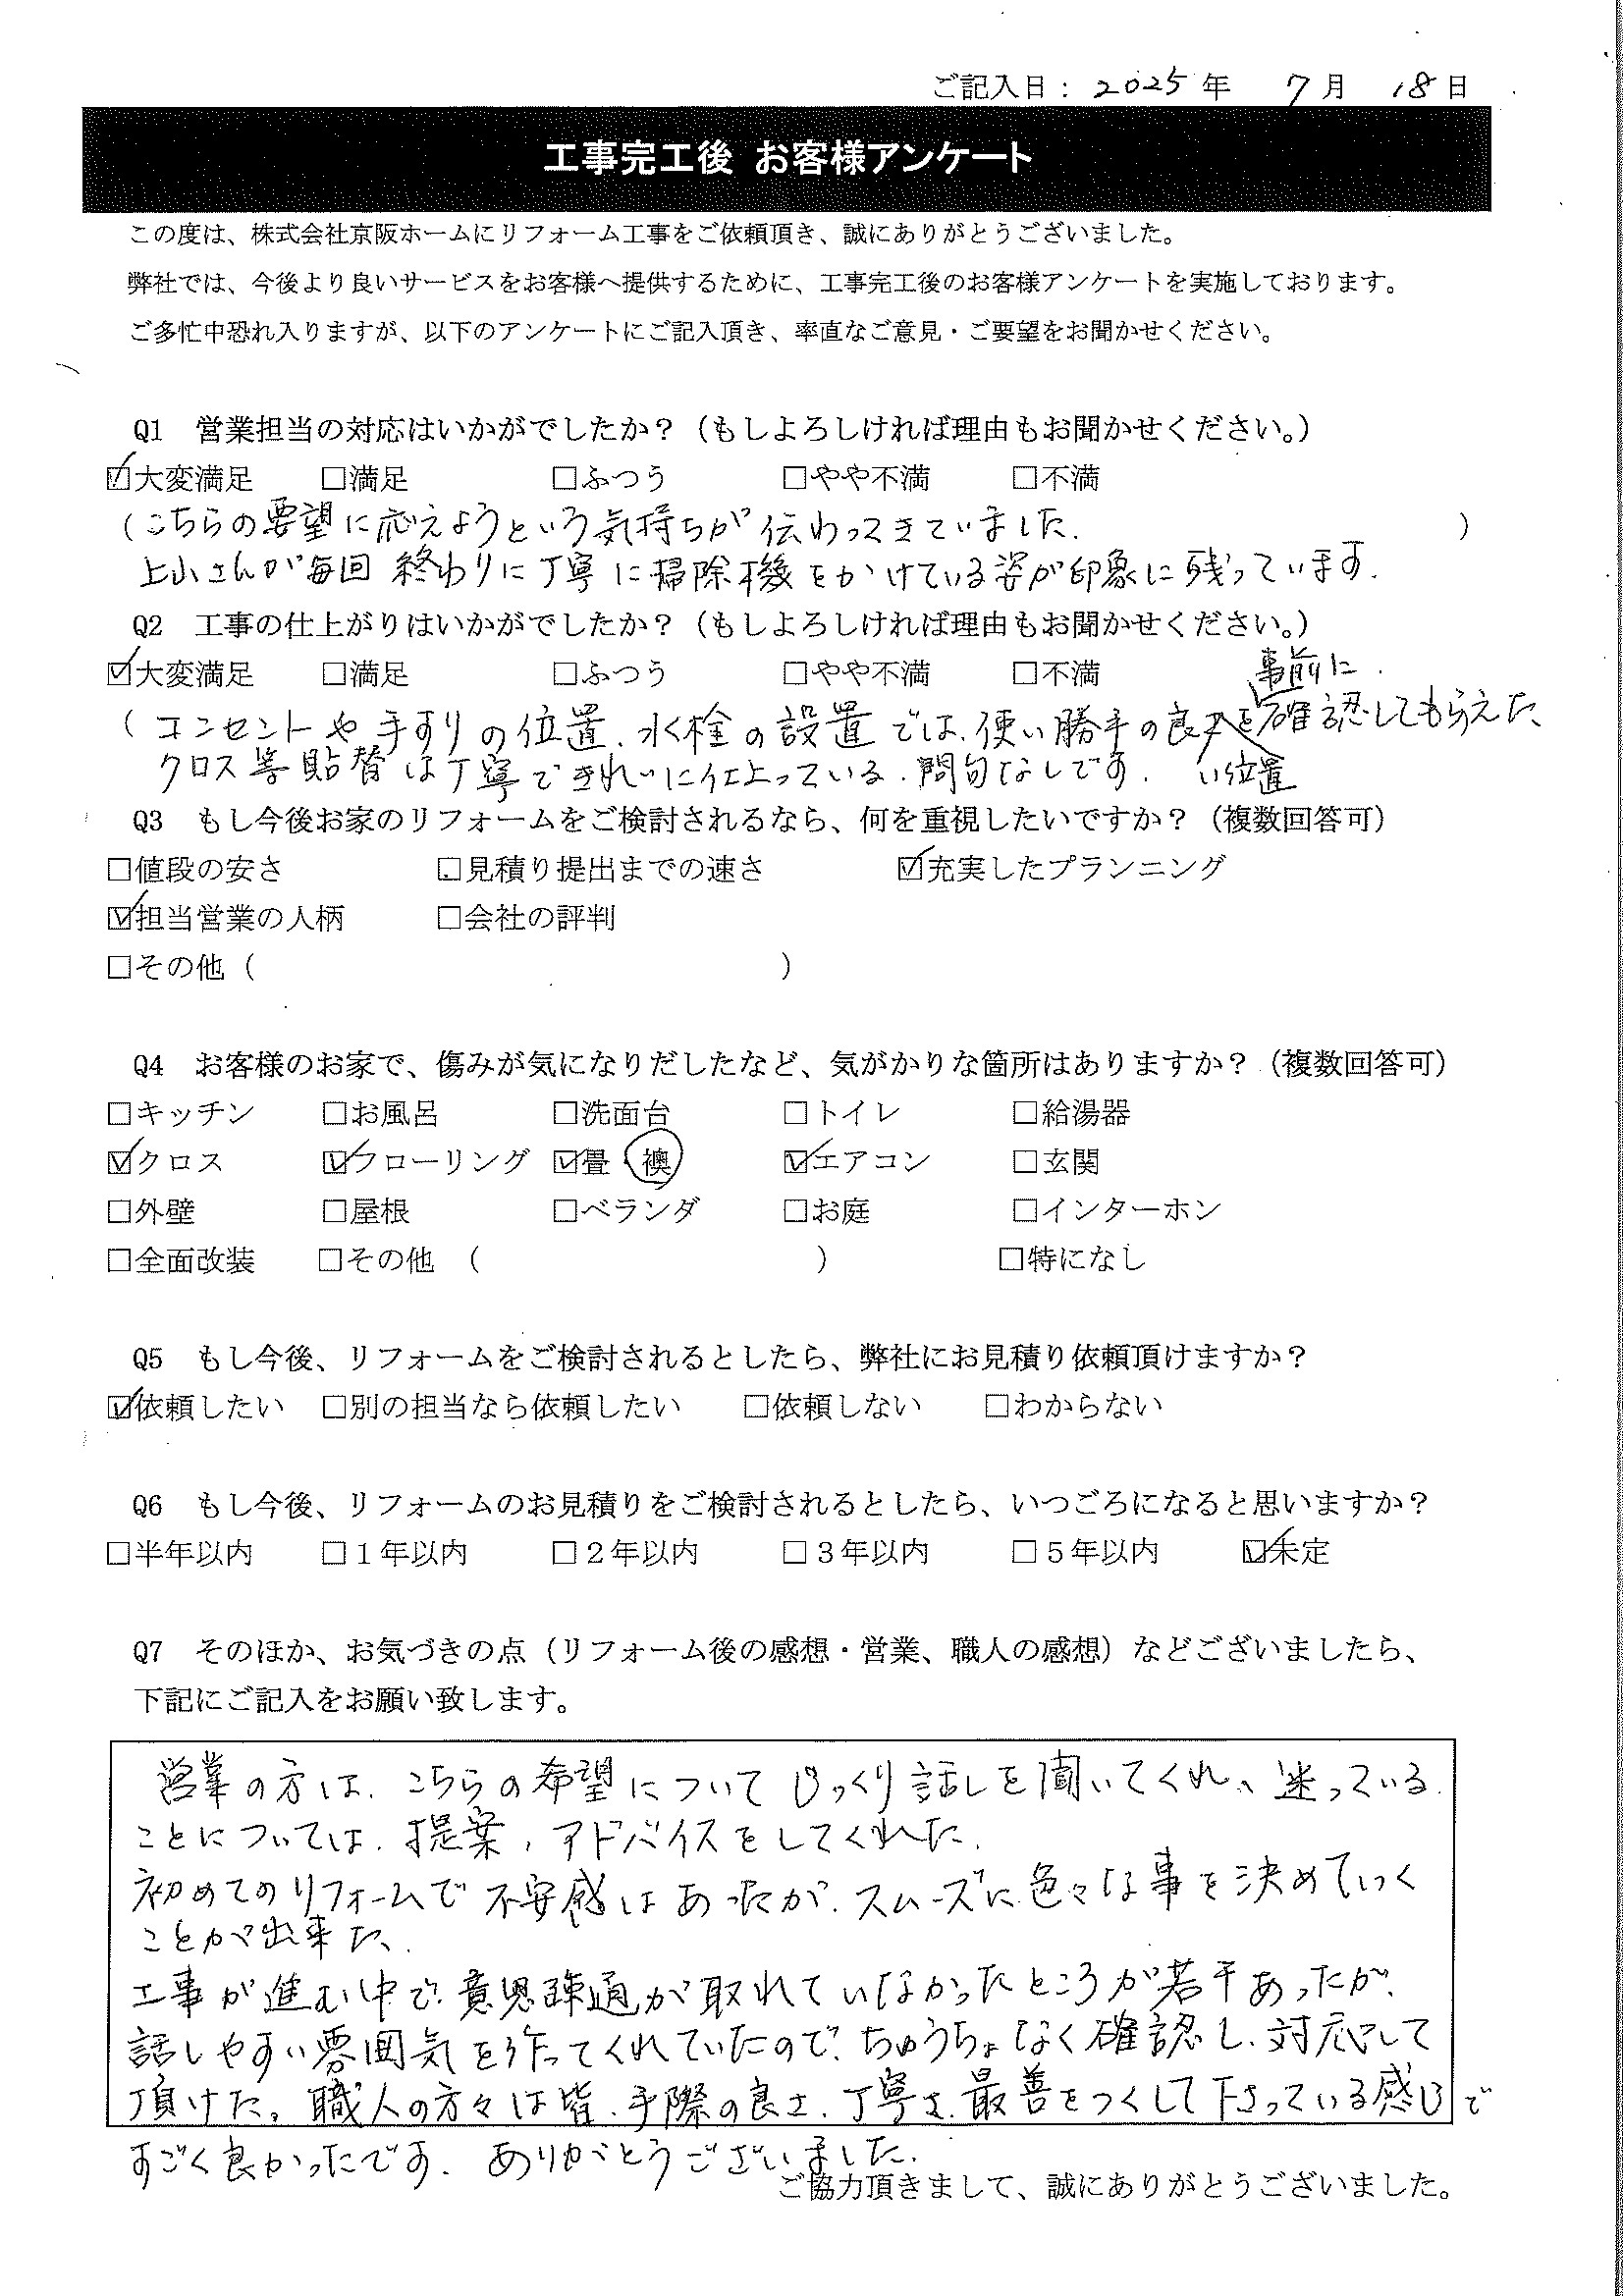 ご記入日：2025年　7月　18日
工事完工後 お客様アンケート
この度は、株式会社京阪ホームにリフォーム工事をご依頼頂き、誠にありがとうございました。
弊社では、今後より良いサービスをお客様へ提供するために、工事完工後のお客様アンケートを実施しております。
ご多忙中恐れ入りますが、以下のアンケートにご記入頂き、率直なご意見・ご要望をお聞かせください。
Q1　営業担当の対応はいかがでしたか？（もしよろしければ理由もお聞かせください。）
☑大変満足　□満足　□ふつう　□やや不満　□不満
（こちらの要望に応えようという気持ちが伝わってきていました.　）
上山さんが毎回 終わりに丁寧に掃除機をかけている姿が印象に残っています.
Q2　工事の仕上がりはいかがでしたか？（もしよろしければ理由もお聞かせください。）
☑大変満足　□満足　□ふつう　□やや不満　□不満
事前に
（コンセントや手すりの位置、水栓の設置では、使い勝手の良さを確認してもらえた、
クロス等貼替は丁寧できれいに仕上っている. 問句なしです.　い位置
Q3　もし今後お家のリフォームをご検討されるなら、何を重視したいですか？（複数回答可）
□値段の安さ　□見積り提出までの速さ　☑充実したプランニング
☑担当営業の人柄　□会社の評判
□その他（　）
Q4　お客様のお家で、傷みが気になりだしたなど、気がかりな箇所はありますか？（複数回答可）
□キッチン　□お風呂　□洗面台　□トイレ　□給湯器
☑クロス　☑フローリング　☑畳・襖　☑エアコン　□玄関
□外壁　□屋根　□ベランダ　□お庭　□インターホン
□全面改装　□その他　（　）　□特になし
Q5　もし今後、リフォームをご検討されるとしたら、弊社にお見積り依頼頂けますか？
☑依頼したい　□別の担当なら依頼したい　□依頼しない　□わからない
Q6　もし今後、リフォームのお見積りをご検討されるとしたら、いつごろになると思いますか？
□半年以内　□１年以内　□２年以内　□３年以内　□５年以内　☑未定
Q7　そのほか、お気づきの点（リフォーム後の感想・営業、職人の感想）などございましたら、
下記にご記入をお願い致します。
営業の方は、こちらの希望についてじっくり話しを聞いてくれ、迷っている
ことについては、提案、アドバイスをしてくれた.
初めてのリフォームで不安感はあったが、スムーズに色々な事を決めていく
ことが出来た、
工事が進む中で、意思疎通が取れていなかったところが若干あったが、
話しやすい雰囲気を作ってくれていたので、ちゅうちょなく確認し、対応して
頂けた。職人の方々は皆、手際の良さ、丁寧さ、最善をつくして下さっている感じで
すごく良かったです. ありがとうございました.
ご協力頂きまして、誠にありがとうございました。